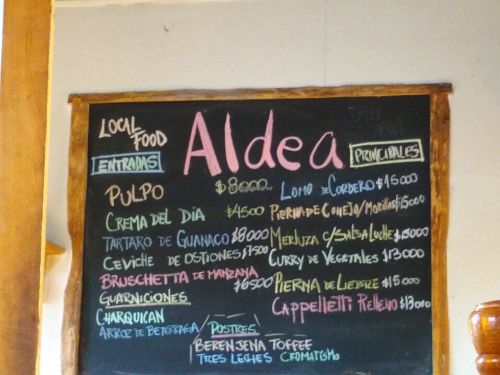 LOCAL
FOOD
Aldea
ENTRADAS
PULPO $8000
CREMA DEL DIA $4500
TARTARO DE GUANACO $8000
CEVICHE DE OSTIONES $7500
BRUSCHETTA DE MANZANA
$6500
GUARNICIONES
CHARQUICAN
ARROZ DE BETERRAGA
PRINCIPALES
LOMO DE CORDERO $15000
PIERNA DE CONEJO/MORILLAS $15000
MERLUZA C/SALSA LUCHE $13000
CURRY DE VEGETALES $13000
PIERNA DE LIEBRE $15000
CAPPELLETTI RELLENO $13000
POSTRES
BERENJENA TOFFEE
TRES LECHES CROMATISMO